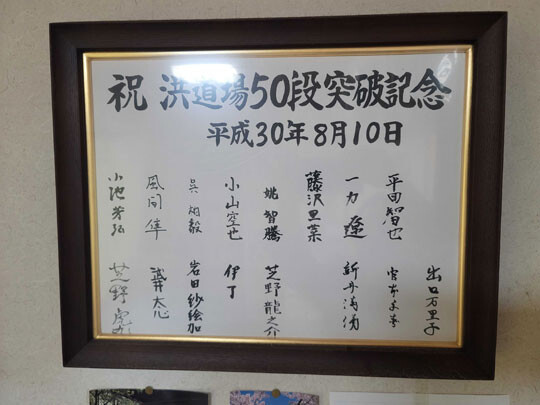 祝 洪道場50段突破記念
平成30年8月10日
出口万里子
平田智也
宮本千春
一力遼
新井満涌
藤沢里菜
姚智騰
芝野龍之介
小山空也
伊了
呉柏毅
岩田紗絵加
風間隼
武井太心
小池芳弘
芝野虎丸